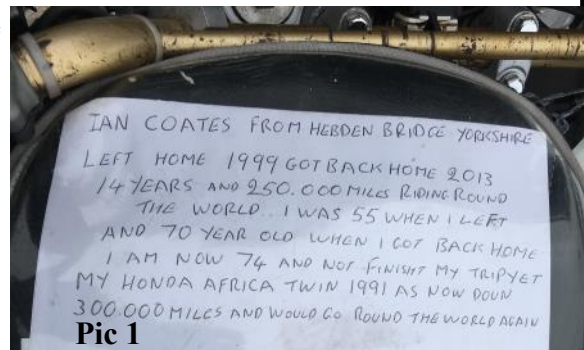 IAN COATES FROM HEBDEN BRIDGE YORKSHIRE
LEFT HOME 1999 GOT BACK HOME 2013
14 YEARS AND 250.000 MILES RIDING ROUND
THE WORLD. I WAS 55 WHEN I LEFT
AND 70 YEAR OLD WHEN I GOT BACK HOME
I AM NOW 74 AND NOT FINISHT MY TRIP YET
MY HONDA AFRICA TWIN 1991 AS NOW DOUN
300.000 MILES AND WOULD GO ROUND THE WORLD AGAIN
Pic 1